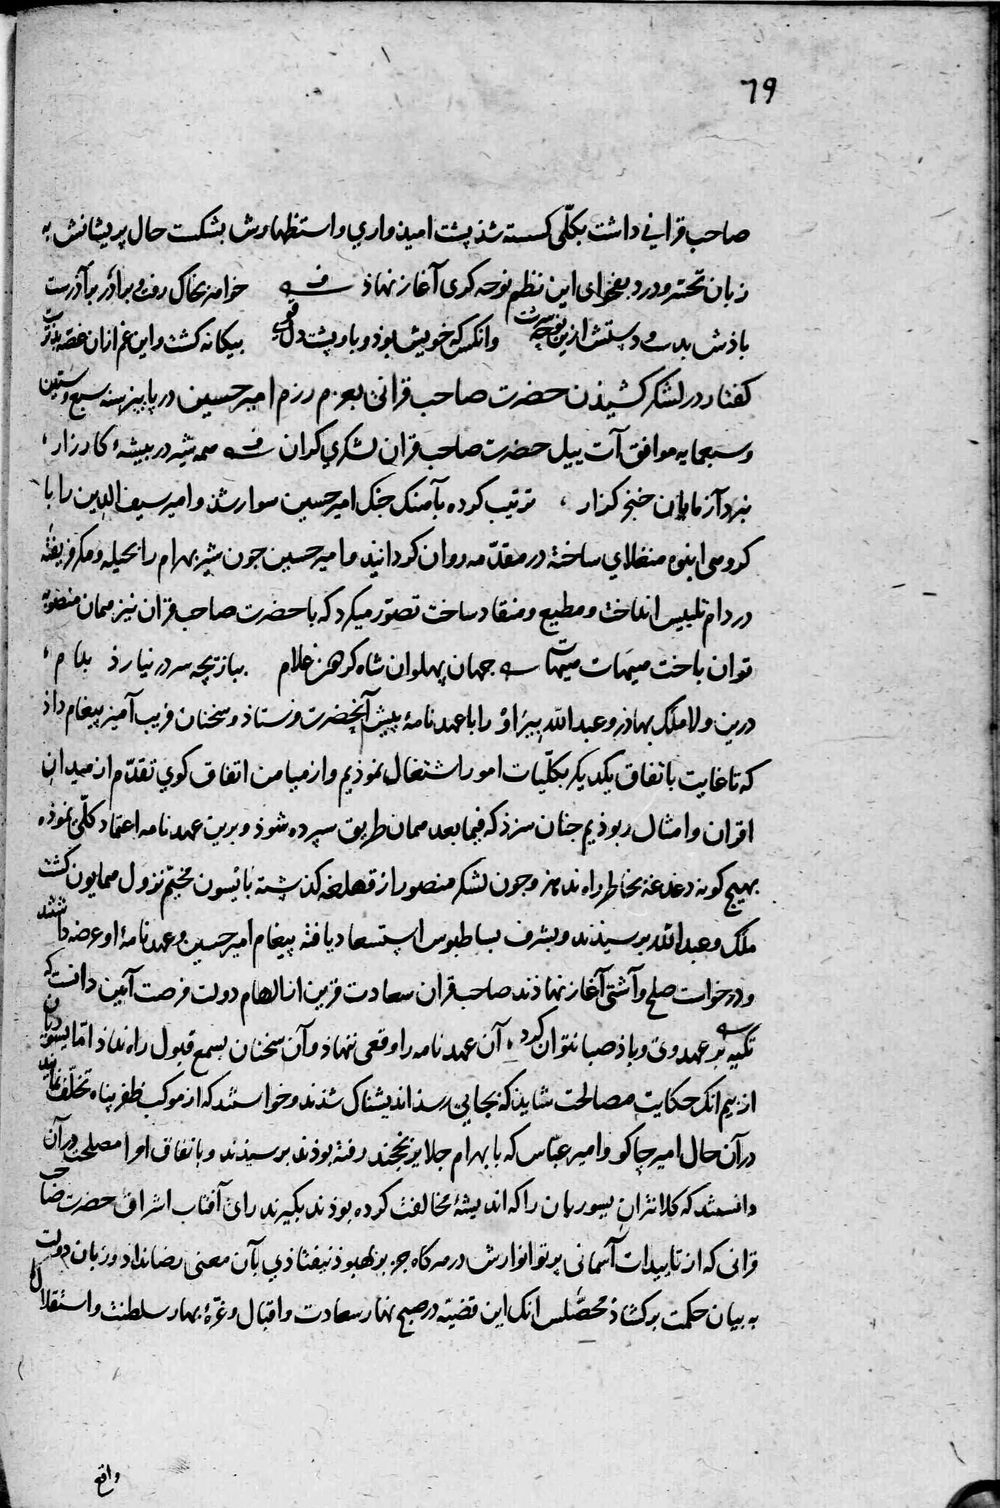 ٦٩
صاحب قرانی داشت بکلّی کسسته شذ پشت امیذواري و استظهارش بشکست حال پریشانش به
زبان تحسّر و درد بفحوای این نظم نوحه کری آغاز نهاذ خوامرم بخاک رفت و براذر برآذرست
باذش بدست و دستش ازین وانکس که خویش بوذ و باو پشت دل قوی بیکانه کشت و این غم ازان غصّه بذترست
کفتار در لشکر کشیذن حضرت صاحب قرانی بعزم رزم امیر حسین در پاییز سنه سبع و ستین
و سبعمایه موافق آت ییل حضرت صاحب قران لشکري کران همه شیر در بیشهٔ کارزار ،
نبرد آزمایان خنجر کذار ، ترتیب کرده بآهنک جنک امیر حسین سوار شذ و امیر سیف الدین را با
کروهی انبوه منغلاي ساخته در مقدّمه روان کردانید و امیر حسین جون شیر بهرام را بحیله و مکر فریفته
در دام تلبیس انداخت و مطیع و منقاد ساخت تصوّر میکرد که با حضرت صاحب قران نیز همان منصوبه
توان باخت هیهات هیهات جهان پهلوان شاه کرهر غلام ببازیچه سر در نیارذ بدام ،
درین ولا ملک بهاذر و عبد الله پیراؤ را با عهدنامهٔ پیش آنحضرت فرستاذ و سخنان فریب آمیز پیغام داذ
که تا غایت باتفاق یکدیکر بکلّیات امور اشتغال نموذیم و از میامن اتفاق کوي تقدّم از میدان
اقران و امثال ربوذیم جنان سزذ که فیما بعد همان طریق سپرده شوذ و برین عهدنامه اعتماد کلّی نموذه
بهیچ کونه دغدغه بخاطر راه ندهند و جون لشکر منصور از قهلغه کذشته بائیسون مخیّم نزول همایون کشت
ملک و عبد الله برسیذند و بشرف بساط بوس استسعاد یافته پیغام امیر حسین و عهدنامهٔ او عرضه داشتند
و درخواست صلح و آشتی آغاز نهاذند صاحب قران سعادت قرین از الهام دولت فرصت آیین دانست که
تکیه بر عهد وی و باذ صبا نتوان کرد ، آن عهدنامه را وقعی ننهاذ و آن سخنان بسمع قبول راه نداذ امّا یسوریان
از بیم انک حکایت مصالحت شایذ که بجایی رسذ اندیشناک شذند و خواستند که از موکب ظفر پناه تخلّف نمایند
در آن حال امیر جاکو و امیر عبّاس که با بهرام جلایر بخجند رفته بوذند برسیذند و باتفاق امرا مصلحت در آن
دانستند که کلانتران یسوریان را که اندیشهٔ مخالفت کرده بوذند بکیرند رای آفتاب اشراق حضرت صاحب
قرانی که از تاییدات آسمانی پرتو انوارش در هر کاه جز بر بهبوذ نیفتاذي بآن معنی رضا نداد و زبان دولت
به بیان حکمت برکشاذ محصّلش انک این قضیّه در صبح نهار سعادت و اقبال و غرّهٔ بهار سلطنت و استقلال
واقع